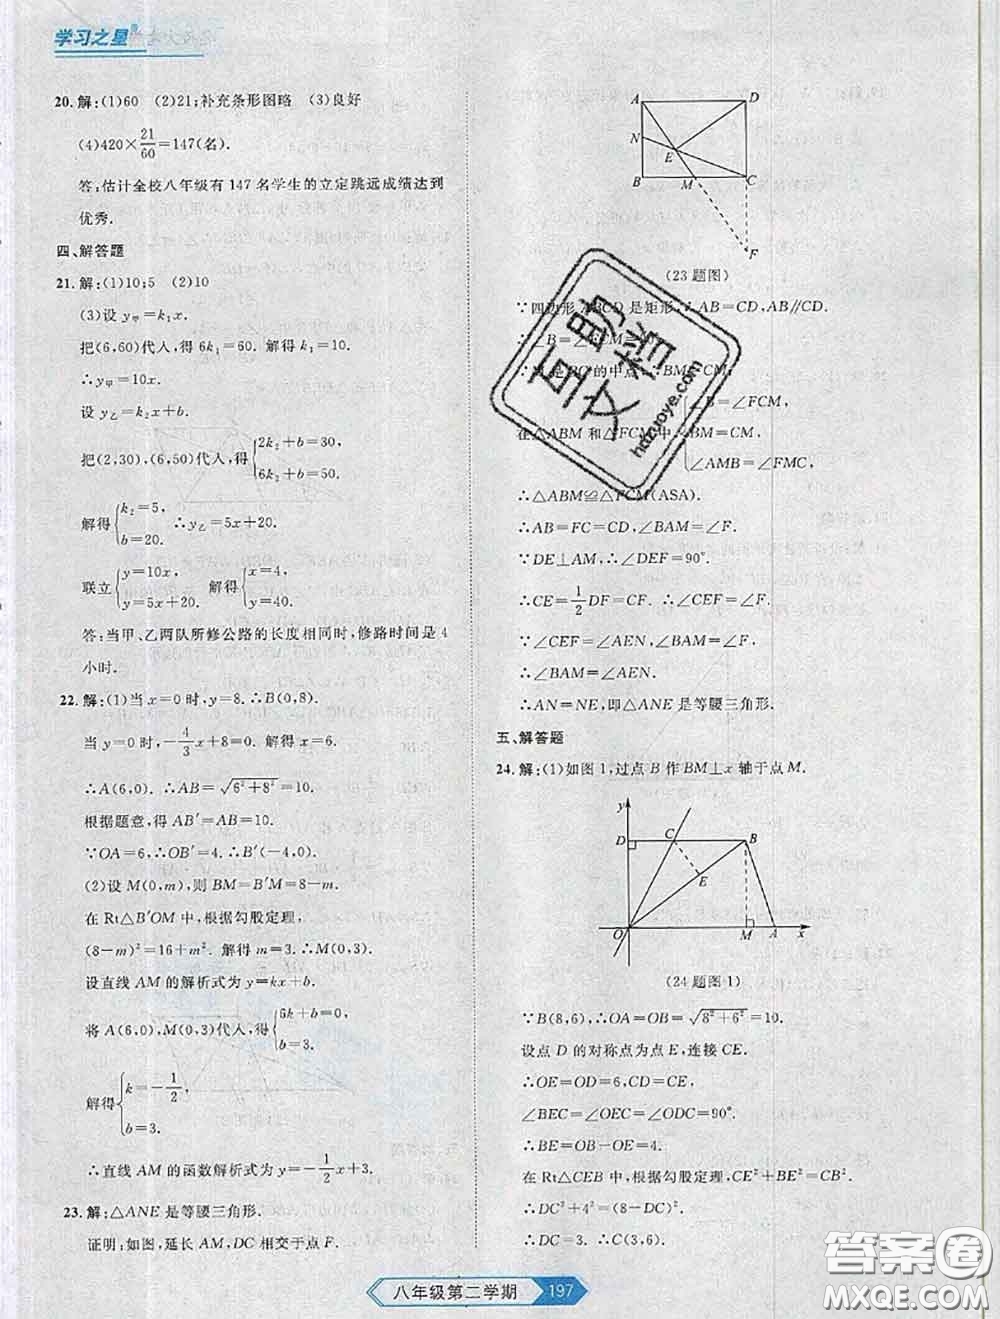 学习之星
20.解:(1)60 (2)21;补充条形图略 (3)良好
(4)420×21/60=147(名).
答:估计全校八年级有147名学生的立定跳远成绩达到
优秀.
四、解答题
21.解:(1)10;5 (2)10
(3)设y甲=k₁x.
把(6,60)代人,得6k₁=60. 解得k₁=10.
∴y甲=10x.
设y乙=k₂x+b.
把(2,30),(6,50)代人,得{2k₂+b=30,
6k₂+b=50.
解得{k₂=5, ∴y乙=5x+20.
b=20.
联立{y=10x, 解得{x=4,
y=5x+20. y=40.
答:当甲、乙两队所修公路的长度相同时,修路时间是4
小时.
22.解:(1)当x=0时,y=8.∴B(0,8).
当y=0时,-4/3x+8=0. 解得x=6.
∴A(6,0). ∴AB=√(6²+8²)=10.
根据题意,得AB′=AB=10.
∵OA=6,∴OB′=4.∴B′(-4,0).
(2)设M(0,m),则BM=B′M=8-m.
在Rt△B′OM中,根据勾股定理,
(8-m)²=16+m². 解得m=3.∴M(0,3).
设直线AM的解析式为y=kx+b.
将A(6,0),M(0,3)代人,得{6k+b=0,
b=3.
解得{k=-1/2,
b=3.
∴直线AM的函数解析式为y=-1/2x+3.
23.解:△ANE是等腰三角形.
证明:如图,延长AM,DC相交于点F.
A D
N
E
B M C
F
(23题图)
∵四边形ABCD是矩形,∴AB=CD,AB∥CD.
∴∠B=∠FCM=90°.
∵M是BC的中点,∴BM=CM.
在△ABM和△FCM中,{∠B=∠FCM,
BM=CM,
∠AMB=∠FMC,
∴△ABM≌△FCM(ASA).
∴AB=FC=CD,∠BAM=∠F.
∵DE⊥AM,∴∠DEF=90°.
∴CE=1/2DF=CF. ∴∠F=∠CEF.
∵∠CEF=∠AEN,∠BAM=∠F,
∴∠BAM=∠AEN.
∴AN=NE,即△ANE是等腰三角形.
五、解答题
24.解:(1)如图1,过点B作BM⊥x轴于点M.
y
D C B
E
O M A x
(24题图1)
∵B(8,6),∴OA=OB=√(8²+6²)=10.
设点D的对称点为点E,连接CE.
∴OE=OD=6,CD=CE,
∠BEC=∠OEC=∠ODC=90°.
∴BE=OB-OE=4.
在Rt△CEB中,根据勾股定理,CE²+BE²=CB².
∴DC²+4²=(8-DC)².
∴DC=3. ∴C(3,6).
八年级第二学期 197
互助文档
hdzuoye.com
答案卷
MXQE.COM